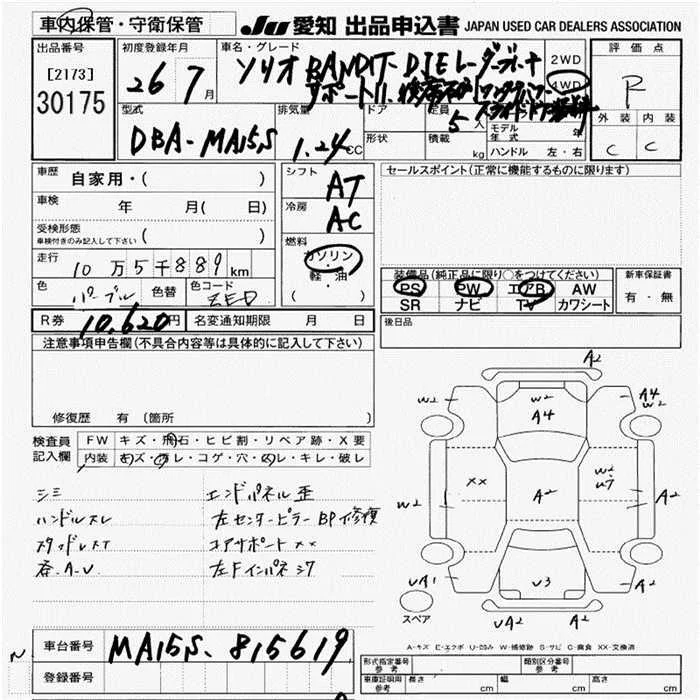 車内保管・守衛保管
JU 愛知 出品申込書 JAPAN USED CAR DEALERS ASSOCIATION
出品番号
[2173]
30175
初度登録年月
26 7月
車名・グレード
ソリオ BANDIT-DJEレーダーブレーキ
サポートII
2WD
4WD
評価点
R
外装 内装
C C
型式
DBA-MA15S
排気量
1.24 CC
ドア
形状
定員
5人
積載
kg
モデル
年式
年
ハンドル 左・右
車歴
自家用・( )
車検
年 月( 日)
受検形態
車検付きのみ記入して下さい ( )
走行
10万5千889km
色
パープル
色替
色コード
ZED
R券 10,620円
名変通知期限 月 日
シフト
AT
冷房
AC
燃料
ガソリン
軽・油
( )
セールスポイント(正常に機能するものに限ります)
装備品(純正品に限り○をつけてください)
PS PW エアB AW
SR ナビ TV カワシート
新車保証書
有・無
後日品
注意事項申告欄(不具合内容等は具体的に記入して下さい)
修復歴 有 (箇所 )
検査員
記入欄
FW キズ・飛石・ヒビ割・リペア跡・X要
内装 キズ・汚レ・コゲ・穴・スレ・キレ・破レ
シミ
ハンドルスレ
スタッドレスT
春.A.V
エンドパネル歪
左センターピラーBP修復
コアサポート××
左Fインパネシワ
A2
W2
W2
A4
A4
W2
W2
××
A2
W2
U7
A2
UA1
U3
A2
UA2
A2
スペア
A-キズ E-エクボ U-凹み W-補修跡 S-サビ C-腐食 XX-交換済
車台番号
MA15S-815619
登録番号
形式指定番号
参考
類別区分番号
参考
車庫証明用
参考
長さ cm
幅 cm
高さ cm